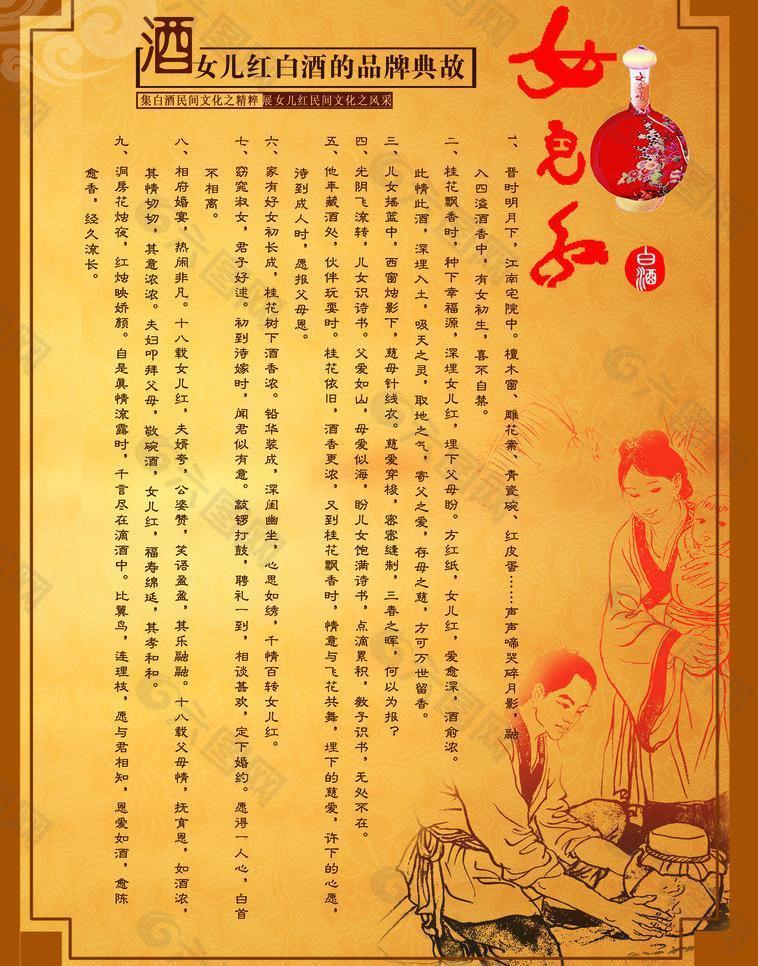 酒女儿红白酒的品牌典故
集白酒民间文化之精粹 展女儿红民间文化之风采
女儿红
白酒
一、晋时明月下，江南宅院中。檀木窗、雕花案、青瓷碗、红皮蛋……声声啼哭碎月影，融
入四溢酒香中，有女初生，喜不自禁。
二、桂花飘香时，种下幸福源，深埋女儿红，埋下父母盼。方红纸，女儿红，爱愈深，酒俞浓。
此情此酒，深埋入土，吸天之灵，取地之气，寄父之爱，存母之慈，方可万世留香。
三、儿女摇篮中，西窗烛影下，慈母针线衣。慈爱穿梭，密密缝制，三春之晖，何以为报？
四、光阴飞流转，儿女识诗书。父爱如山，母爱似海，盼儿女饱满诗书，点滴累积，教子识书，无处不在。
五、他年藏酒处，伙伴玩耍时。桂花依旧，酒香更浓，又到桂花飘香时，情意与飞花共舞，埋下的慈爱，许下的心愿，
待到成人时，愿报父母恩。
六、家有好女初长成，桂花树下酒香浓。铅华装成，深闺幽坐，心思如绣，千情百转女儿红。
七、窈窕淑女，君子好逑。初到待嫁时，闻君似有意。敲锣打鼓，聘礼一到，相谈甚欢，定下婚约。愿得一人心，白首
不相离。
八、相府婚宴，热闹非凡。十八载女儿红，夫婿夸，公婆赞，笑语盈盈，其乐融融。十八载父母情，抚育恩，如酒浓，
其情切切，其意浓浓。夫妇叩拜父母，敬碗酒，女儿红，福寿绵延，其孝和和。
九、洞房花烛夜，红烛映娇颜。自是真情流露时，千言尽在滴酒中。比翼鸟，连理枝，愿与君相知，恩爱如酒，愈陈
愈香，经久流长。
六图网